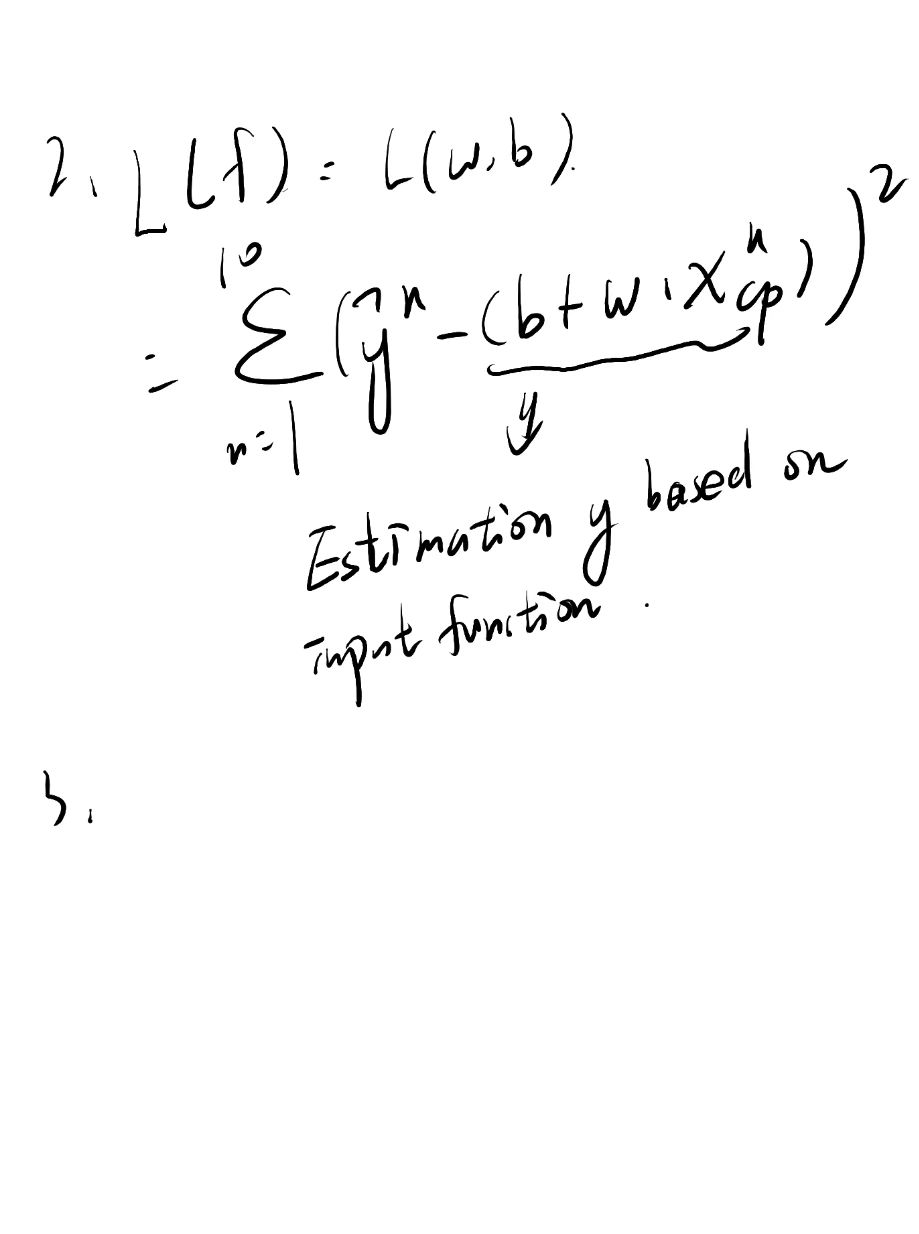 2. L(f) = L(w,b)
= \sum_{n=1}^{10} (\hat{y}^n - (b + w \cdot x_{cp}^n))^2
y
Estimation y based on
input function .
3.